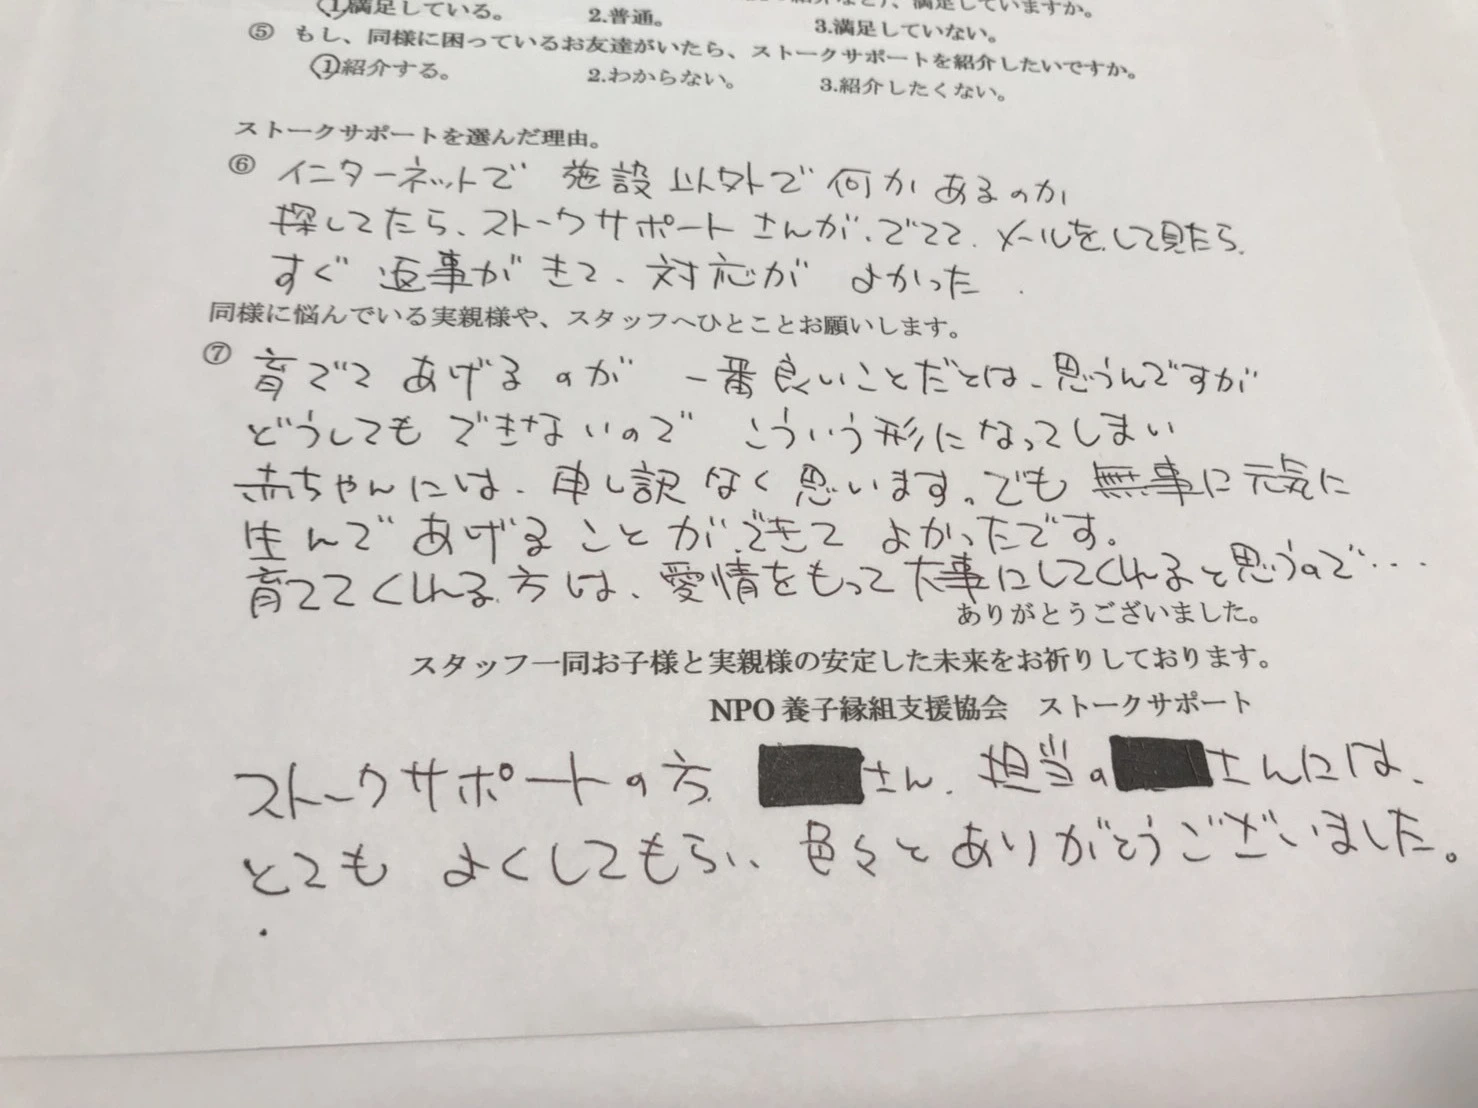 ①満足している。 2.普通。 3.満足していない。
満足していますか。
⑤ もし、同様に困っているお友達がいたら、ストークサポートを紹介したいですか。
①紹介する。 2.わからない。 3.紹介したくない。
ストークサポートを選んだ理由。
⑥ インターネットで 施設以外で何かあるのか
探してたら、ストークサポートさんが、でてて、メールをして見たら
すぐ返事がきて、対応が よかった.
同様に悩んでいる実親様や、スタッフへひとことお願いします。
⑦ 育ててあげるのが 一番良いことだとは、思うんですが
どうしてもできないので こういう形になってしまい
赤ちゃんには、申し訳なく思います。でも無事に元気に
生んであげることができて よかったです。
育ててくれる方は、愛情をもって大事にしてくれると思うので…
ありがとうございました。
スタッフ一同お子様と実親様の安定した未来をお祈りしております。
NPO 養子縁組支援協会 ストークサポート
ストークサポートの方 さん、担当の さんには、
とても よくしてもらい、色々とありがとうございました。